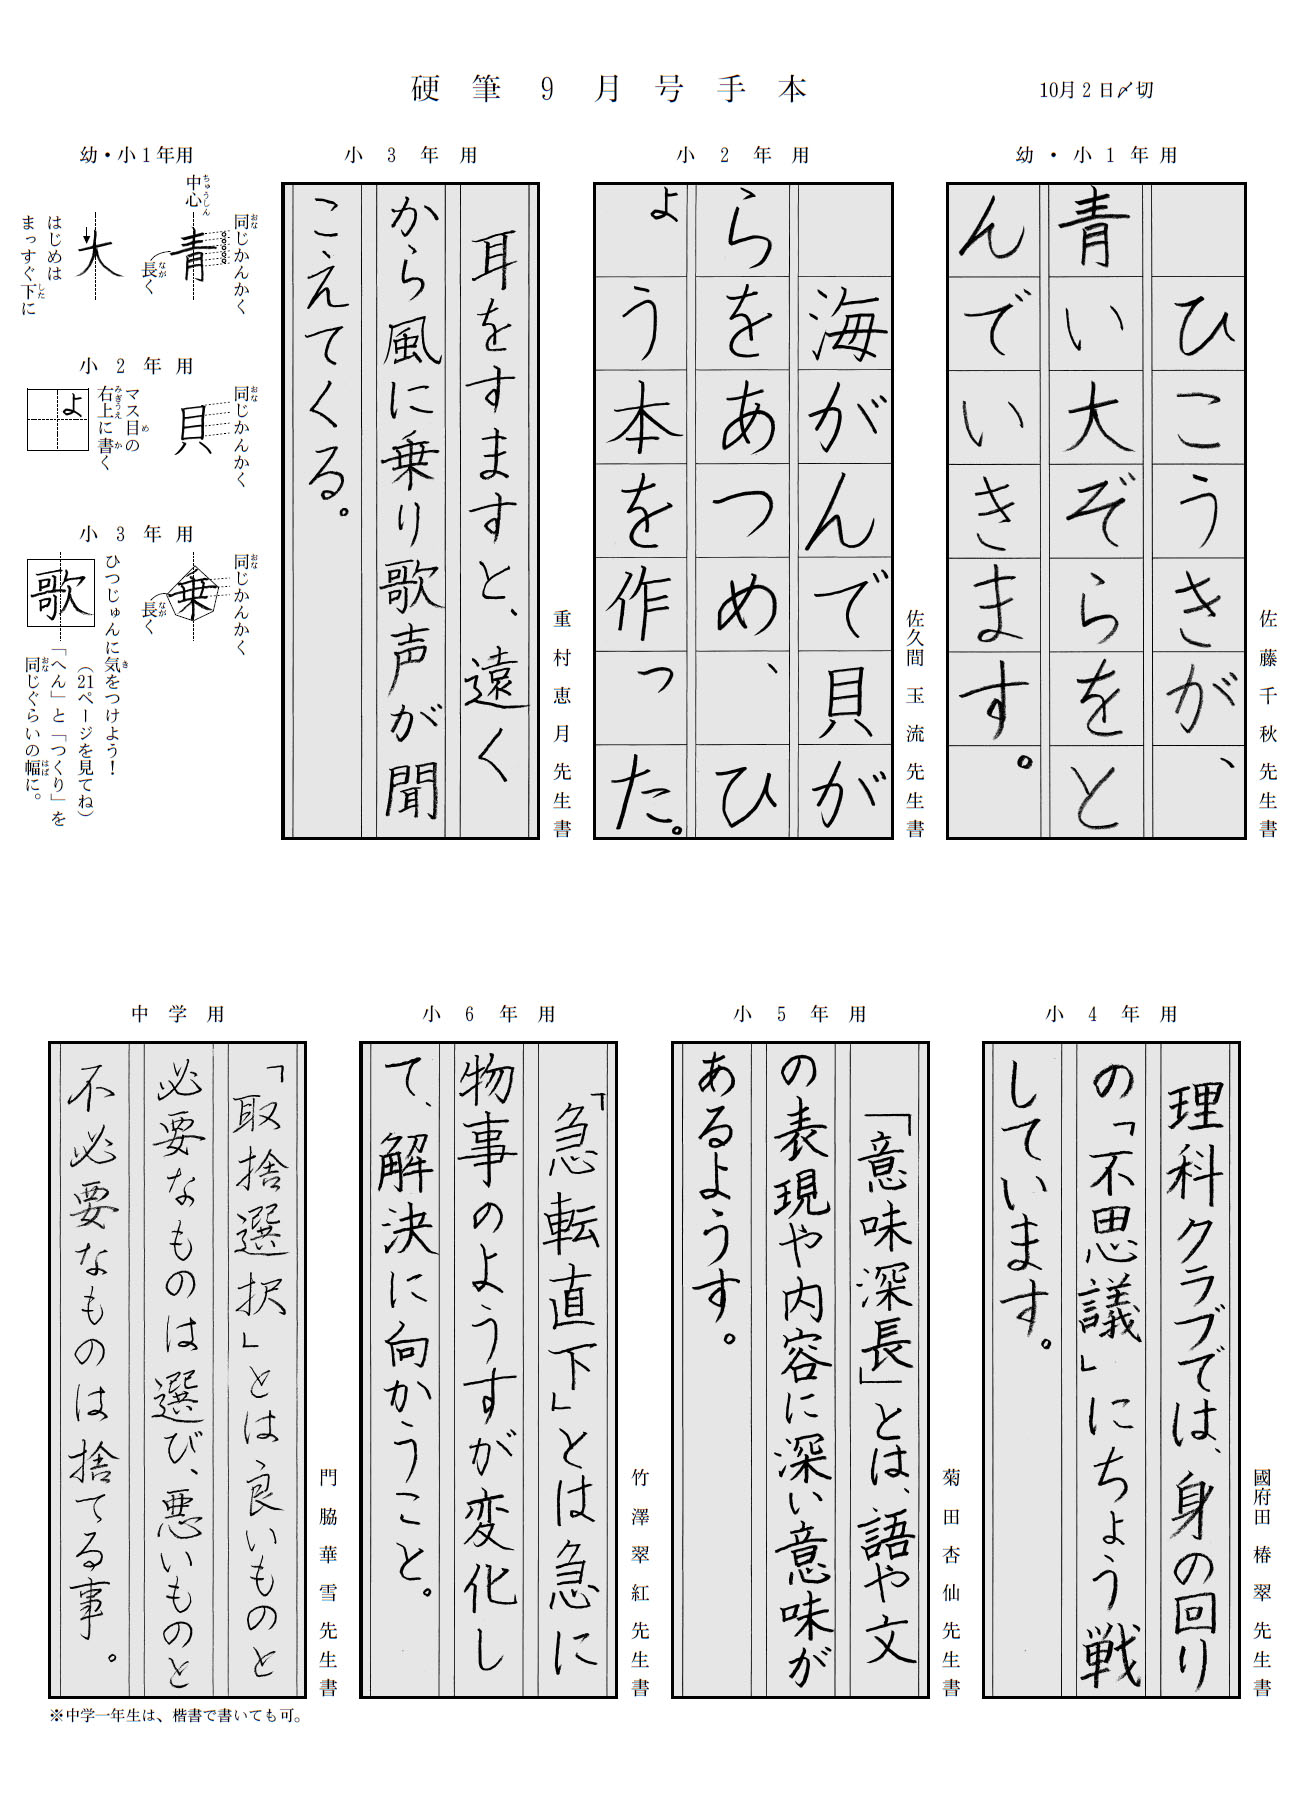 硬筆9月号手本
10月2日〆切
幼・小1年用
ひこうきが、
青い大ぞらをと
んでいきます。
佐藤千秋先生書
小2年用
海がんで貝が
らをあつめ、ひ
ょう本を作った。
佐久間玉流先生書
小3年用
耳をすますと、遠く
から風に乗り歌声が聞
こえてくる。
重村恵月先生書
幼・小1年用
同じかんかく
おな
中心
ちゅうしん
青
長く
なが
大
はじめは
まっすぐ下に
した
小2年用
同じかんかく
おな
貝
マス目の
め
右上に書く
みぎうえ
か
ょ
小3年用
同じかんかく
おな
乗
長く
なが
ひつじゅんに気をつけよう!
き
(21ページを見てね)
歌
「へん」と「つくり」を
同じぐらいの幅に。
おな
はば
小4年用
理科クラブでは、身の回り
の「不思議」にちょう戦
しています。
國府田椿翠先生書
小5年用
「意味深長」とは、語や文
の表現や内容に深い意味が
あるようす。
菊田杏仙先生書
小6年用
「急転直下」とは急に
物事のようすが変化し
て、解決に向かうこと。
竹澤翠紅先生書
中学用
「取捨選択」とは良いものと
必要なものは選び、悪いものと
不必要なものは捨てる事。
門脇華雪先生書
※中学一年生は、楷書で書いても可。